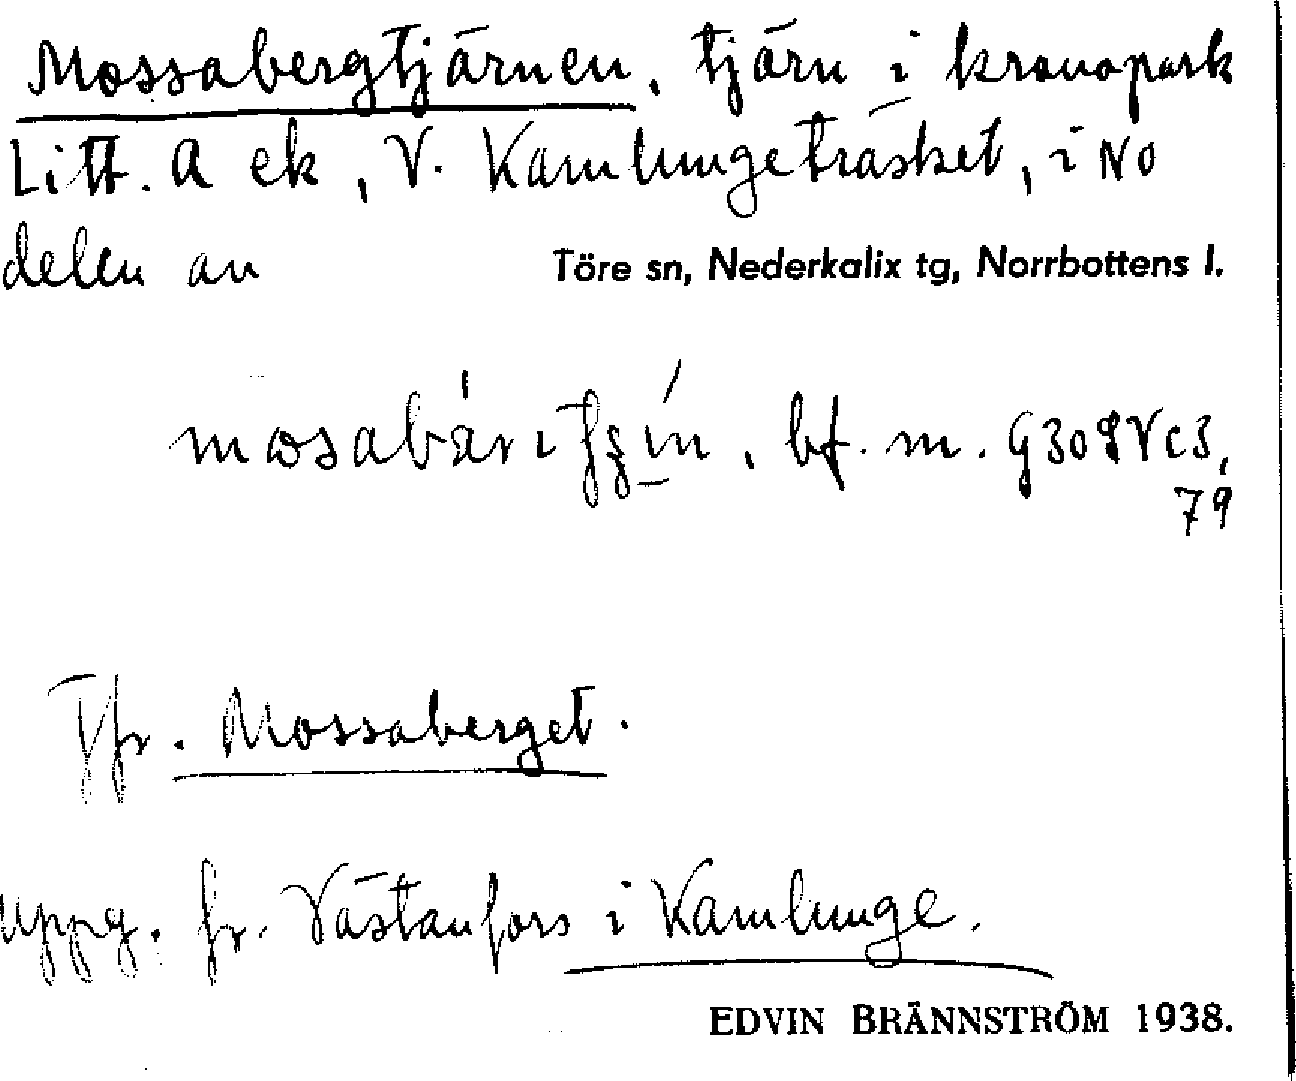 Mossabergtjärnen, tjärn i kronopark
Litt. A ek, V. Kamlungeträsket, i NO
delen av Töre sn, Nederkalix tg, Norrbottens l.
bf. m. G308Vc3,
79
Jfr. Mossaberget.
Uppg. fr. Västanfors i Kamlunge.
EDVIN BRÄNNSTRÖM 1938.